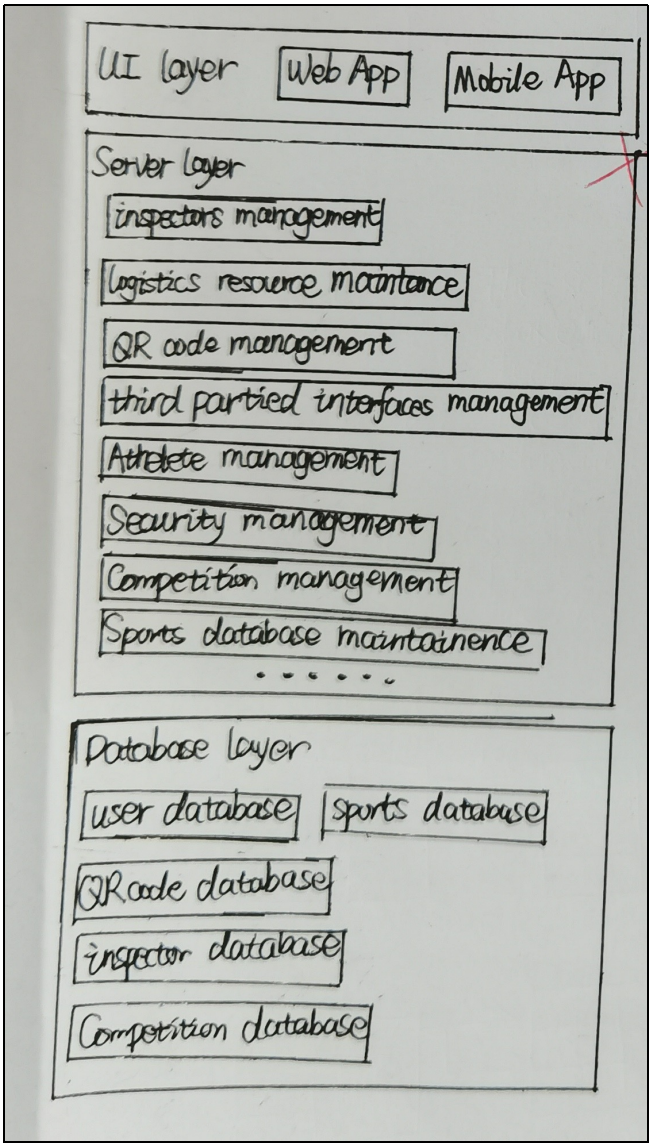 UI layer Web App Mobile App
Server layer
inspectors management
logistics resource maintance
QR code management
third partied interfaces management
Athelete management
Security management
Competition management
Sports database maintainence
......
Database layer
user database sports database
QR code database
inspector database
Competition database